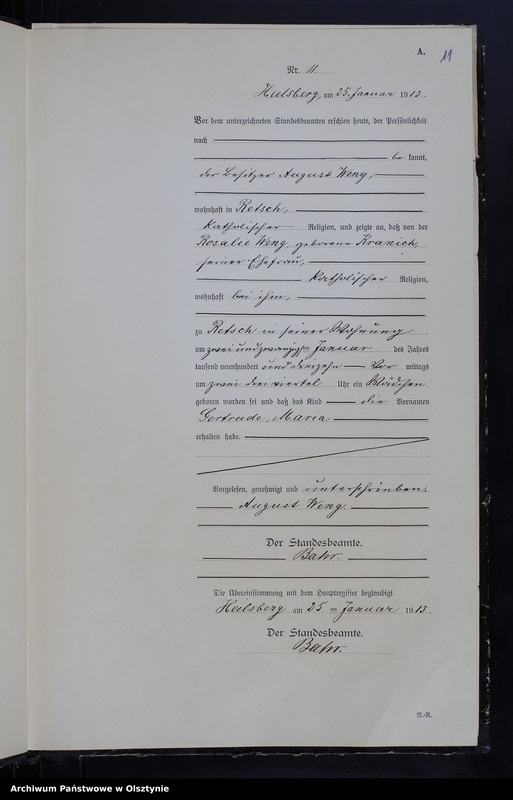 A.
11
Nr. 11.
Heilsberg, am 25. Januar 1913.
Vor dem unterzeichneten Standesbeamten erschien heute, der Persönlichkeit
nach
be kannt,
der Besitzer August Weng,
wohnhaft in Retsch,
katholischer Religion, und zeigte an, daß von der
Rosalie Weng, geborene Kranich,
seiner Ehefrau,
katholischer Religion,
wohnhaft bei ihm,
zu Retsch in seiner Wohnung
am zwei und zwanzigsten Januar des Jahres
tausend neunhundert und dreizehn Vor mittags
um zwei dreiviertel Uhr ein Mädchen
geboren worden sei und daß das Kind die Vornamen
Gertrude, Maria
erhalten habe.
Vorgelesen, genehmigt und unterschrieben.
August Weng.
Der Standesbeamte.
Bahr.
Die Übereinstimmung mit dem Hauptregister beglaubigt
Heilsberg am 25 ten Januar 1913.
Der Standesbeamte.
Bahr.
N.-R.
Archiwum Państwowe w Olsztynie